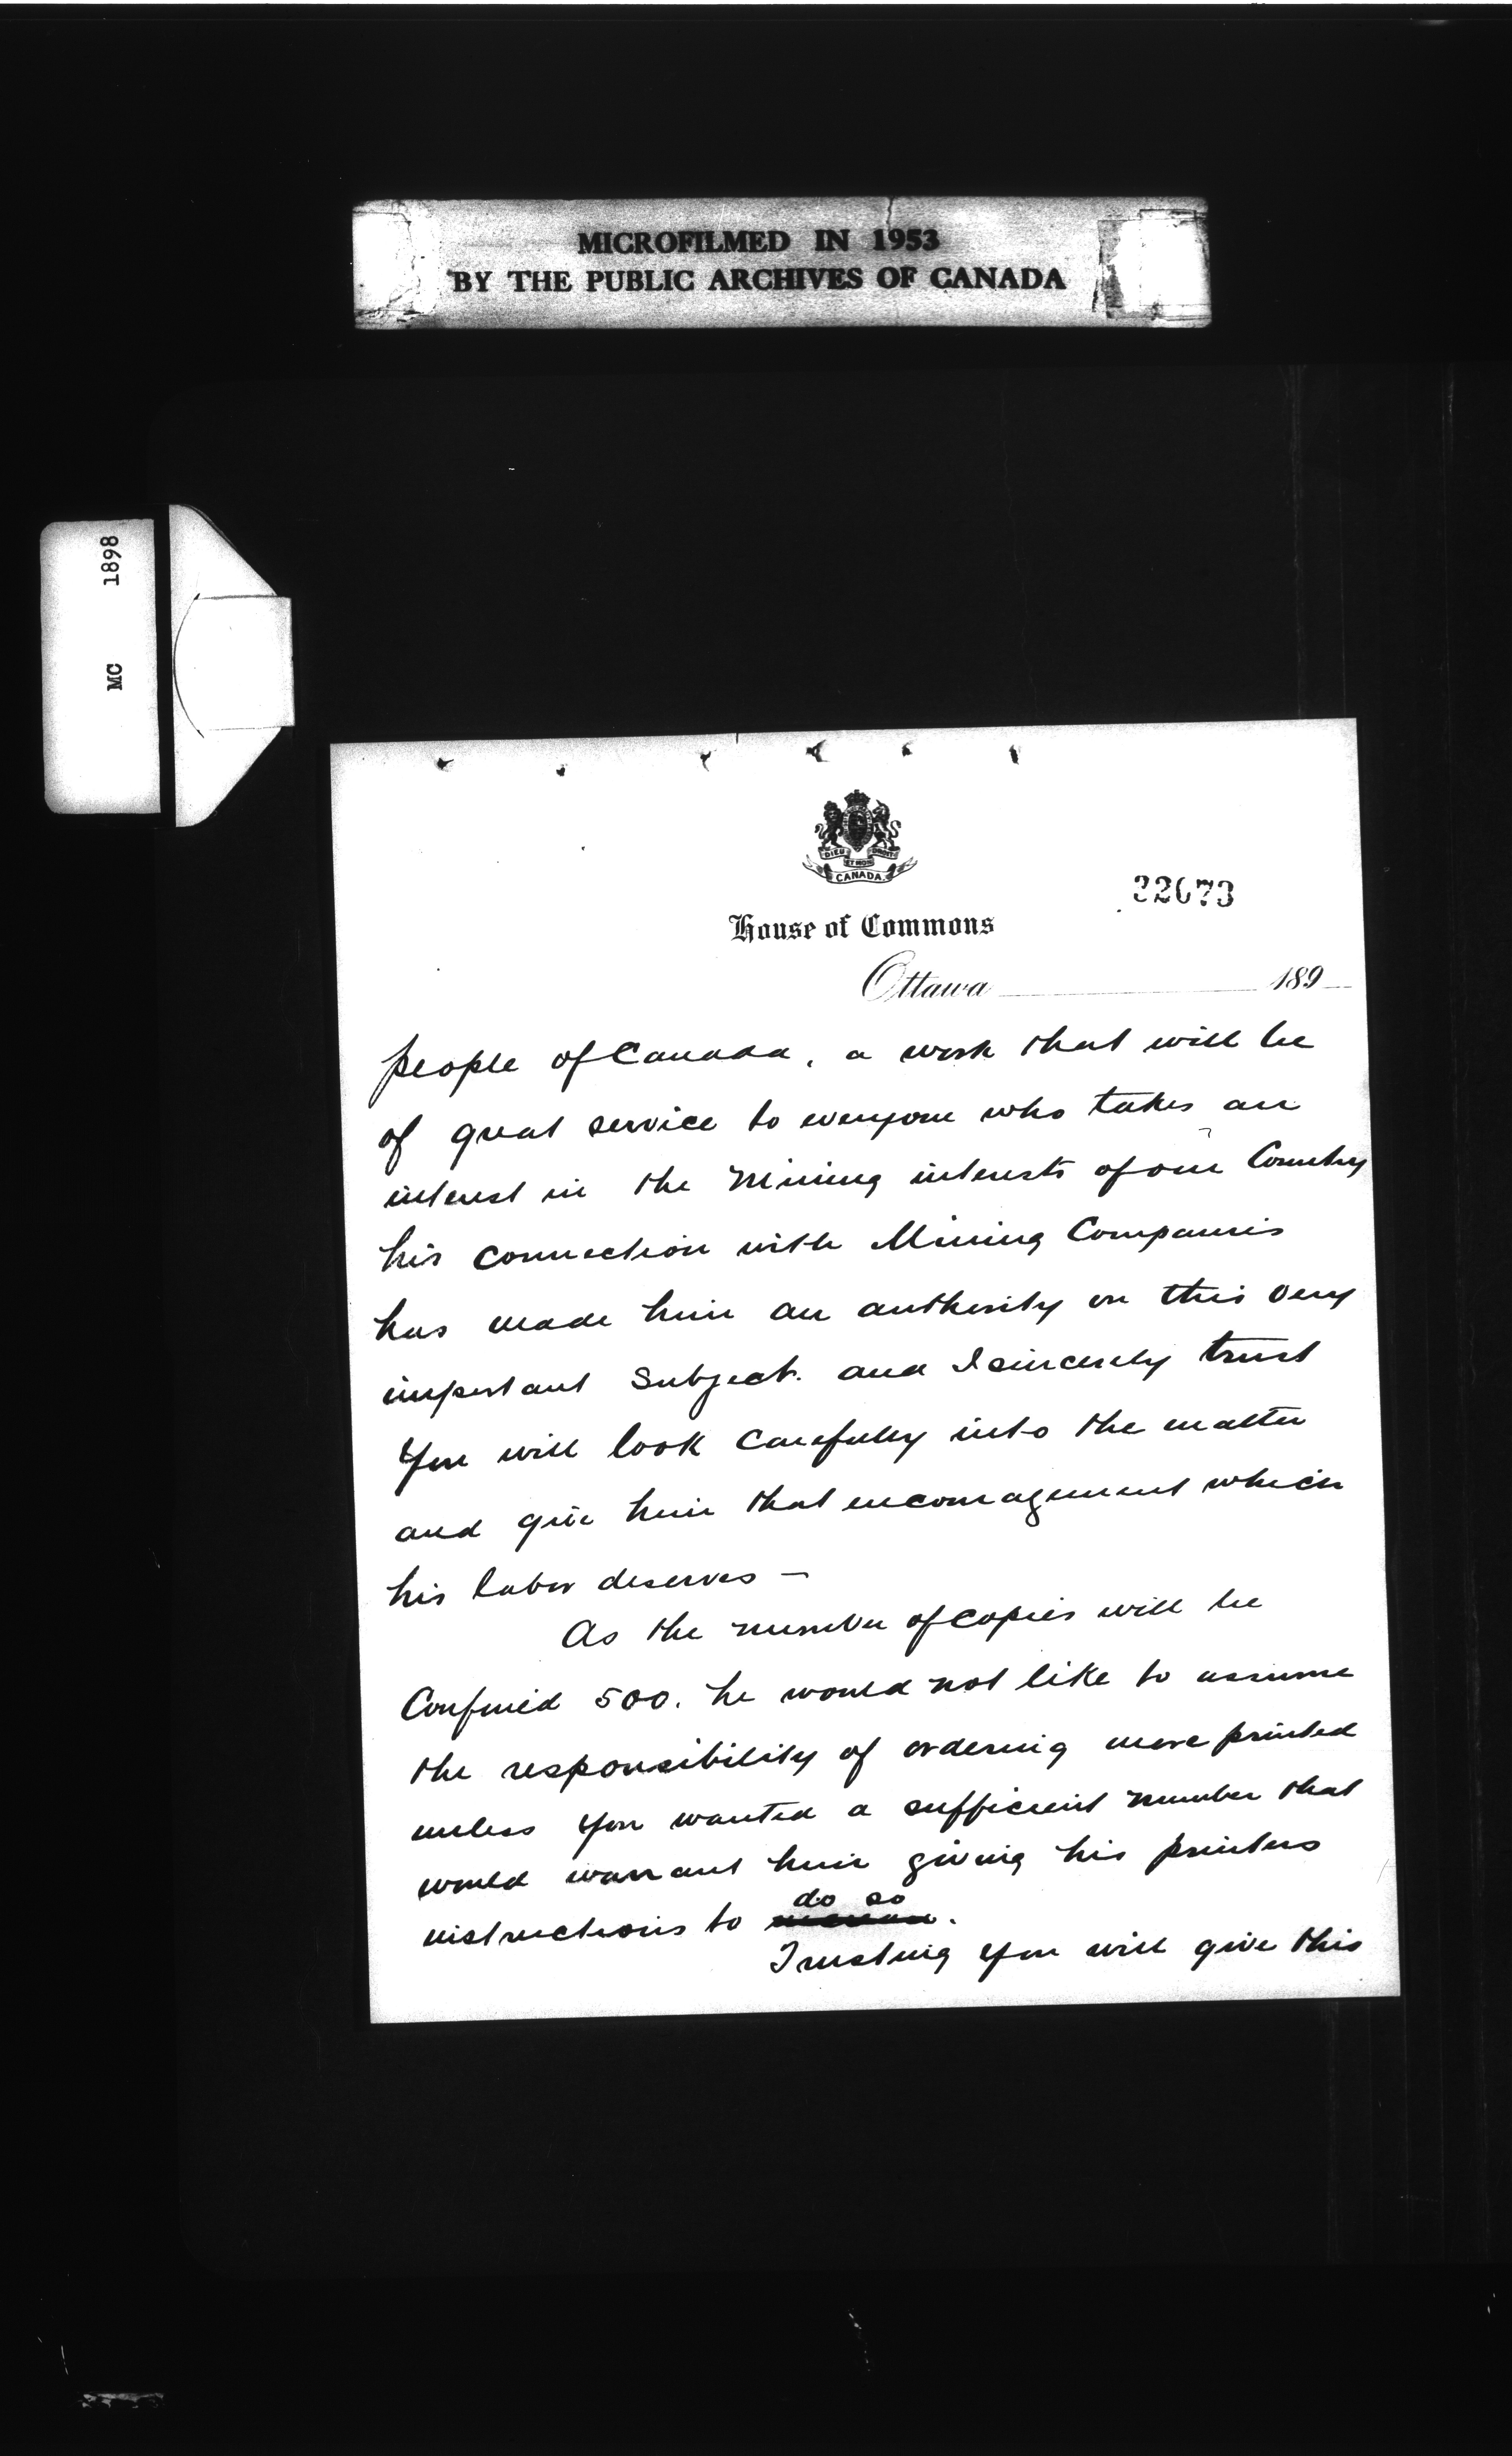 MICROFILMED IN 1953
BY THE PUBLIC ARCHIVES OF CANADA
MC 1898
DIEU ET MON DROIT
CANADA
32673
House of Commons
Ottawa 189
people of Canada, a work that will be
of great service to everyone who takes an
interest in the Mining interests of our Country
his connection with Mining Companies
has made him an authority on this very
important Subject. and I sincerely trust
you will look carefully into the matter
and give him that encouragement which
his labor deserves —
As the number of copies will be
Confined 500. he would not like to assume
the responsibility of ordering more printed
unless you wanted a sufficient number that
would warrant him giving his printers
instructions to do so.
Trusting you will give this